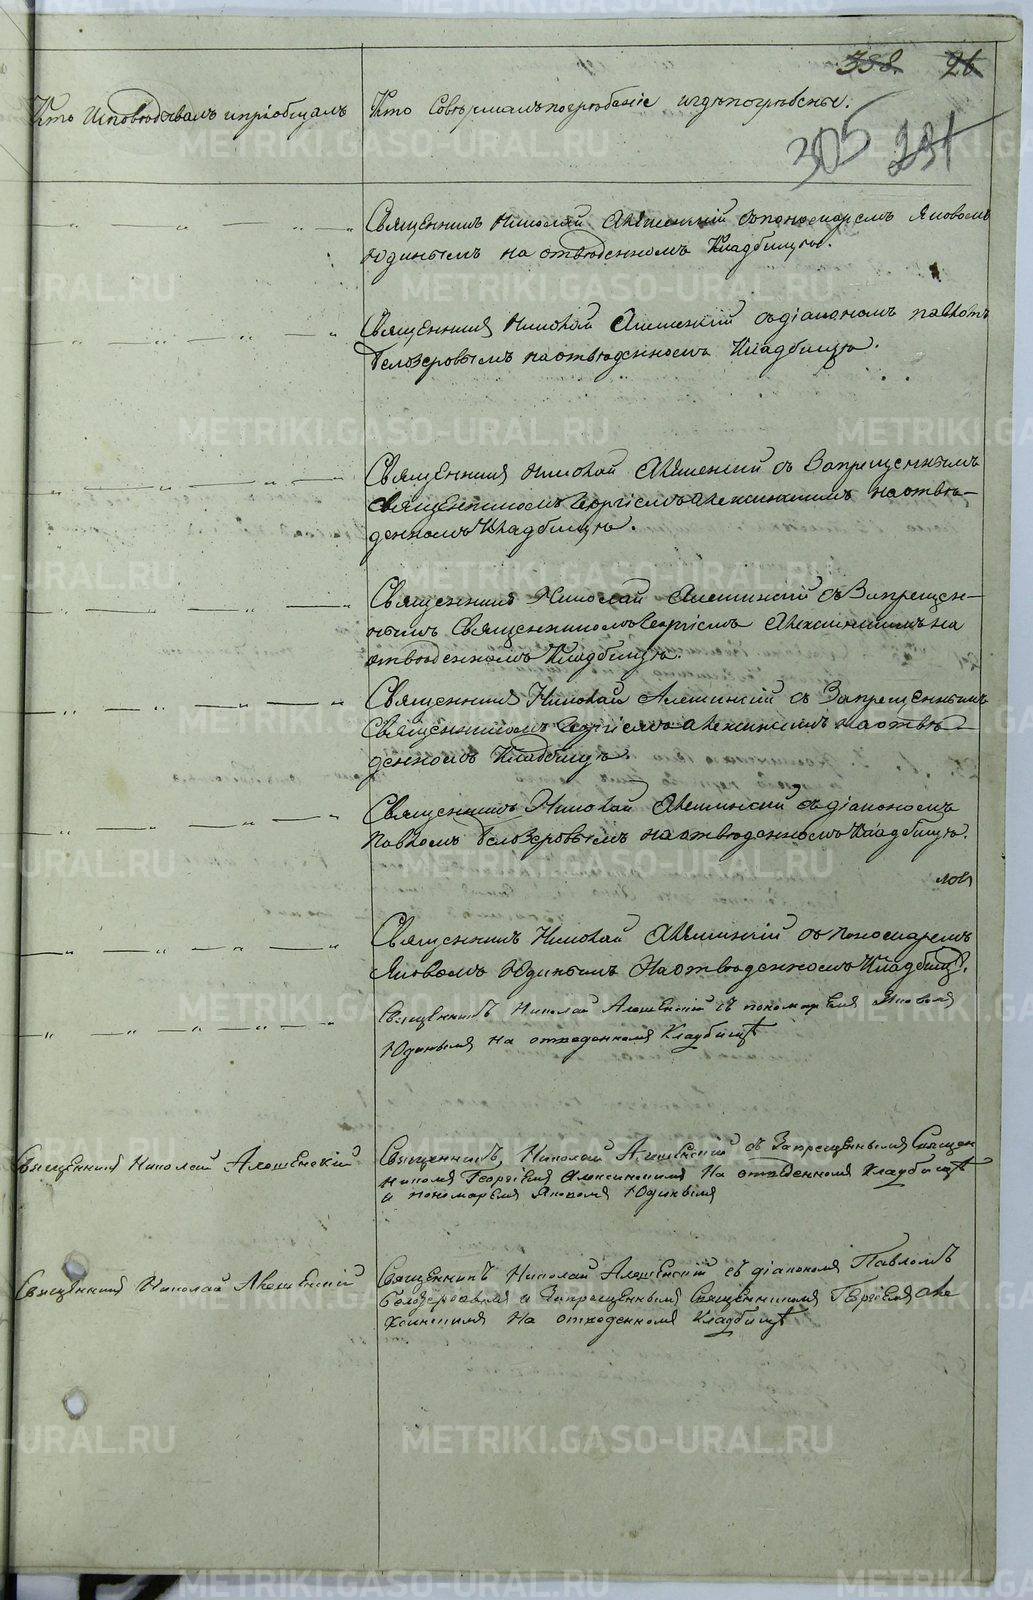 358. 26
Кто исповѣдывалъ и пріобщалъ
Кто совершалъ погребеніе и гдѣ погребены.
305 231
Священникъ Николай Алешинскій съ пономаремъ Яковомъ
Юдинымъ на отвѣденномъ Кладбищѣ.
Священникъ Николай Алешинскій съ діакономъ Павломъ
Белозеровымъ на отвѣденномъ Кладбищѣ.
Священникъ Николай Алешинскій съ Запрещеннымъ
священникомъ Георгіемъ на отвѣ-
денномъ Кладбищѣ.
Священникъ Николай Алешинскій съ Запрещен-
нымъ Священникомъ Георгіемъ на
отвѣденномъ Кладбищѣ.
Священникъ Николай Алешинскій съ Запрещеннымъ
Священникомъ Георгіемъ на отвѣ-
денномъ Кладбищѣ.
Священникъ Николай Алешинскій съ діакономъ
Павломъ Белозеровымъ на отвѣденномъ Кладбищѣ.
Священникъ Николай Алешинскій съ пономаремъ
Яковомъ Юдинымъ на отвѣденномъ Кладбищѣ.
Священникъ Николай Алешенскій съ пономаремъ Яковомъ
Юдинымъ на отведенномъ Кладбищѣ
Священникъ Николай Алешенскій
Священникъ Николай Алешенскій съ Запрещеннымъ Священ
никомъ Георгіемъ на отведенномъ Кладбищѣ
и пономаремъ Яковомъ Юдинымъ
Священникъ Николай Алешенскій
Священникъ Николай Алешенскій съ діакономъ Павломъ
Белозеровымъ и Запрещеннымъ Священникомъ Георгіемъ Але
на отведенномъ Кладбищѣ
METRIKI.GASO-URAL.RU